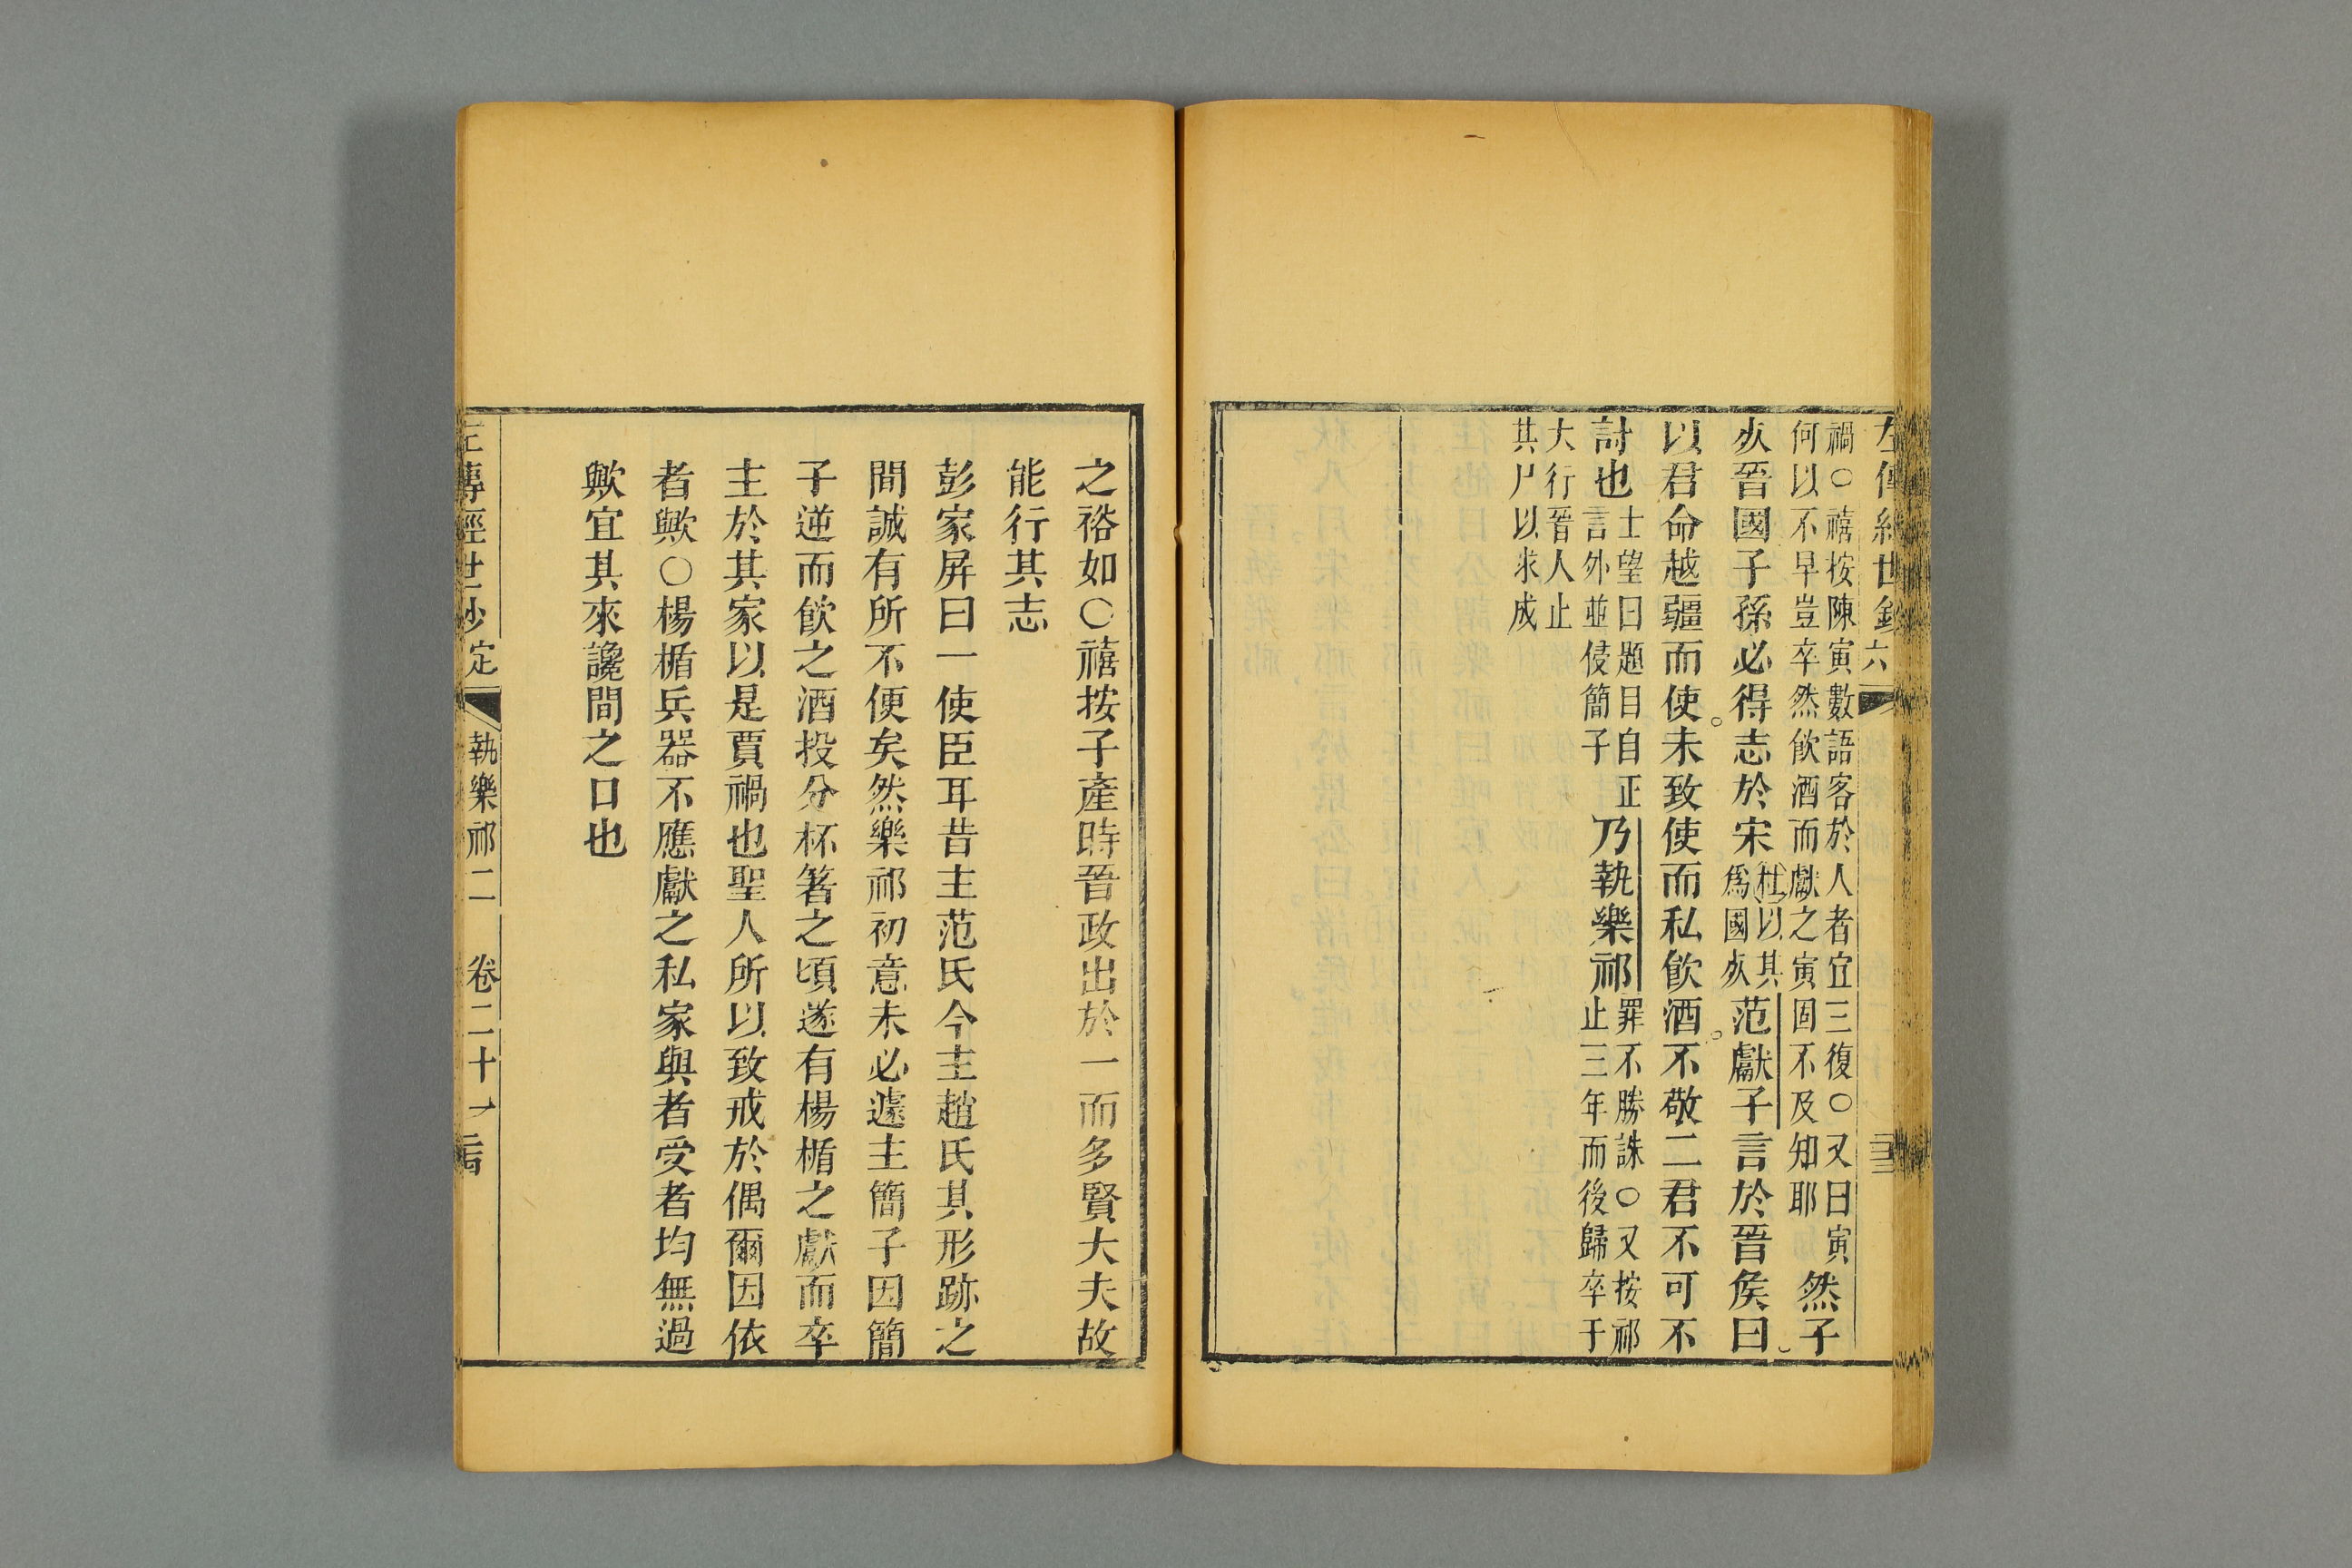 左傳經世鈔 六
禍○禧按陳寅數語客於人者宜三復○又曰寅
何以不早豈卒然飮酒而獻之寅固不及知耶
然子
死晉國子孫必得志於宋
杜以其
爲國死
范獻子言於晉侯曰
以君命越疆而使未致使而私飮酒不敬二君不可不
討也
士望曰題目自正
言外並侵簡子
乃執樂祁
罪不勝誅○又按祁
止三年而後歸卒于
大行晉人止
其尸以求成
之裕如○禧按子產時晉政出於一而多賢大夫故
能行其志
彭家屏曰一使臣耳昔主范氏今主趙氏其形跡之
間誠有所不便矣然樂祁初意未必遽主簡子因簡
子逆而飮之酒投分杯箸之頃遂有楊楯之獻而卒
主於其家以是賈禍也聖人所以致戒於偶爾因依
者歟○楊楯兵器不應獻之私家與者受者均無過
歟宜其來讒間之口也
左傳經世鈔 定 執樂祁二 卷二十一